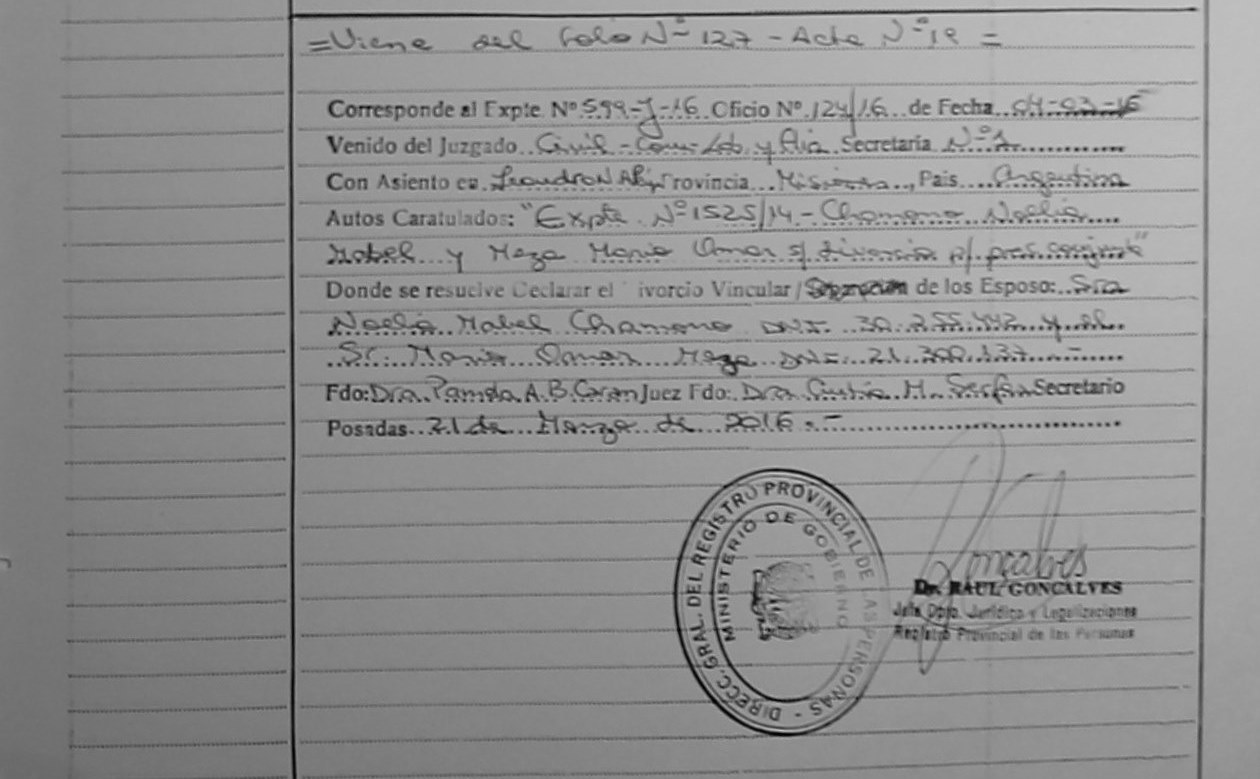 =Viene del Folio Nº 127 - Acta Nº 19 =
Corresponde al Expte. Nº 599-J-16. Oficio Nº 124/16 de Fecha 04-03-16
Venido del Juzgado Civil - Com. Lab. y Flia. Secretaría Nº 1
Con Asiento en Leandro N Alem Provincia Misiones, País Argentina
Autos Caratulados: "Expte. Nº 1525/14 - Chamono Noelia
Mabel y Meza Mario Omar s/ divorcio p/ pres. conjunta"
Donde se resuelve Declarar el ivorcio Vincular / de los Esposo: Sra
Noelia Mabel Chamono DNI. 30.255.442 y el
Sr. Mario Omar Meza DNI. 21.300.137 -
Fdo: Dra. Pamela A.B. Juez Fdo: Dra. M. Secretario
Posadas 21 de Marzo de 2016.-
DIRECC. GRAL. DEL REGISTRO PROVINCIAL DE LAS PERSONAS -
MINISTERIO DE GOBIERNO
Gonçalves
Dr. RAUL GONCALVES
Jefe Dpto. Jurídico y Legalizaciones
Registro Provincial de las Personas